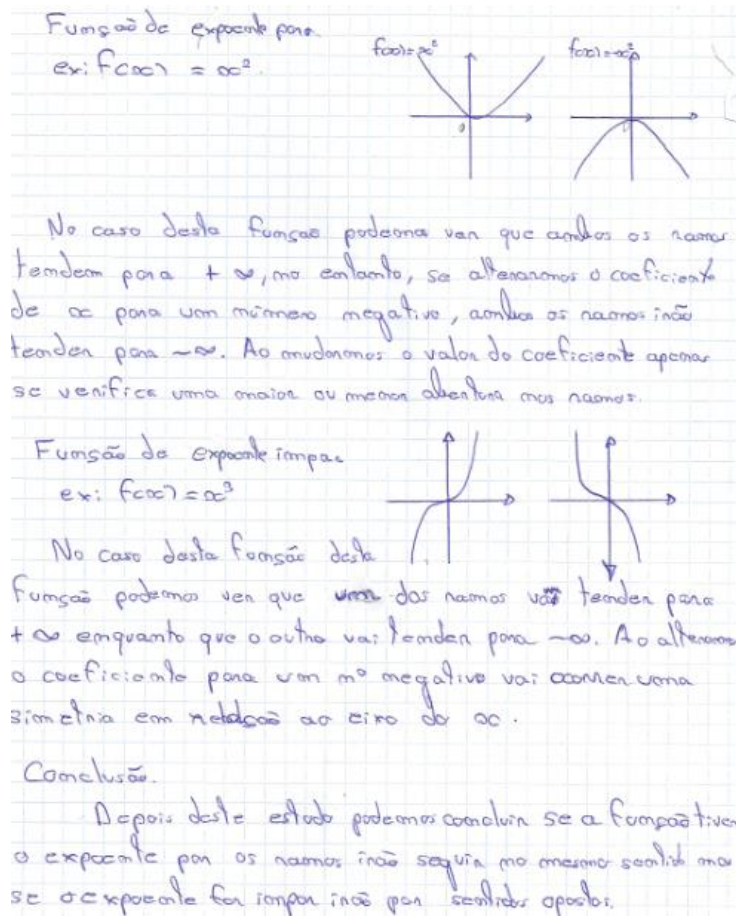 Função de expoente par
f(x)=x²
f(x)=-x²
ex: f(x) = x²
0
No caso desta função podemos ver que ambos os ramos
tendem para + ∞, no entanto, se alterarmos o coeficiente
de x para um número negativo, ambos os ramos irão
tender para -∞. Ao mudarmos o valor do coeficiente apenas
se verifica uma maior ou menor abertura nos ramos.
Função de expoente impar
ex: f(x) = x³
No caso desta função desta
função podemos ver que um dos ramos vai tender para
+ ∞ enquanto que o outro vai tender para -∞. Ao alterarmos
o coeficiente para um nº negativo vai ocorrer uma
simetria em relação ao eixo do x.
Conclusão.
Depois deste estudo podemos concluir se a função tiver
o expoente par os ramos irão seguir no mesmo sentido mas
se o expoente for impar irão por sentidos opostos.